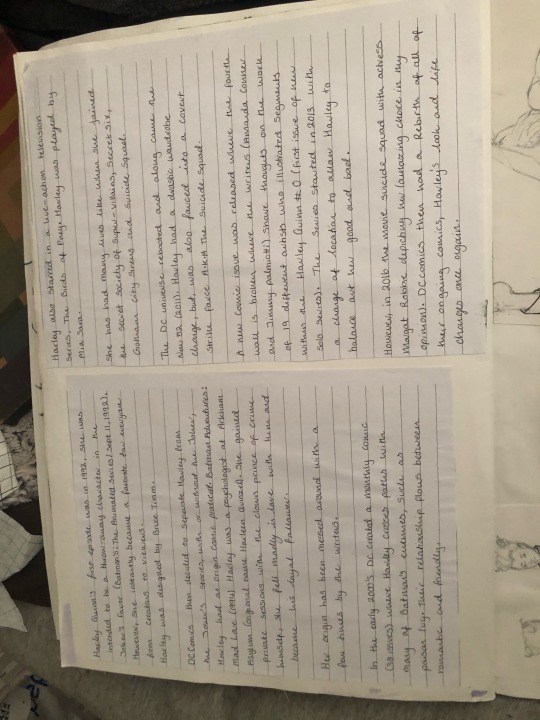 Harley Quinn's first episode was in 1992, she was
intended to be a throw-away character in the
Joker's favor (Batman: The Animated Series/Sept 11, 1992).
However, she instantly became a favorite for everyone
from creators to viewers.
Harley was designed by Bruce Timm.
DC Comics then decided to separate Harley from
the Joker's stories, with or without the Joker,
Harley had an origin comic Batman Adventures:
Mad Love (1994). Harley was a psychologist at Arkham
Asylum (original name Harleen Quinzel). She gained
private sessions with the clown prince of crime
himself, she fell madly in love with him and
became his loyal follower.
Her origin has been messed around with a
few times by the writers.
In the early 2000's DC created a monthly comic
(38 issues) where Harley crosses paths with
many of Batman's enemies, such as
poison Ivy. Their relationship flows between
romantic and friendly.
Harley also starred in a live-action television
series, The Birds of Prey. Harley was played by
Mia Sara.
She has had many lives like when she joined
the secret society of super-villains, Secret Six,
Gotham City Sirens and Suicide Squad.
The DC universe rebooted and along came the
New 52 (2011). Harley had a drastic wardrobe
change, but was also forced into a covert
strike force A.K.A The Suicide Squad.
A new comic issue was released where the fourth
wall is broken where the writers (Amanda Conner
and Jimmy palmiotti) share thoughts on the work
of 19 different artists who illustrated segments
within the Harley Quinn #0 (first issue of new
solo series). The series started in 2013 with
a change of location to allow Harley to
balance out her good and bad.
However, in 2016 the movie suicide squad with actress
Margot Robbie depicting her (amazing choice in my
opinion). DC comics then had a Rebirth of all of
their ongoing comics, Harley's look and life
changes once again.